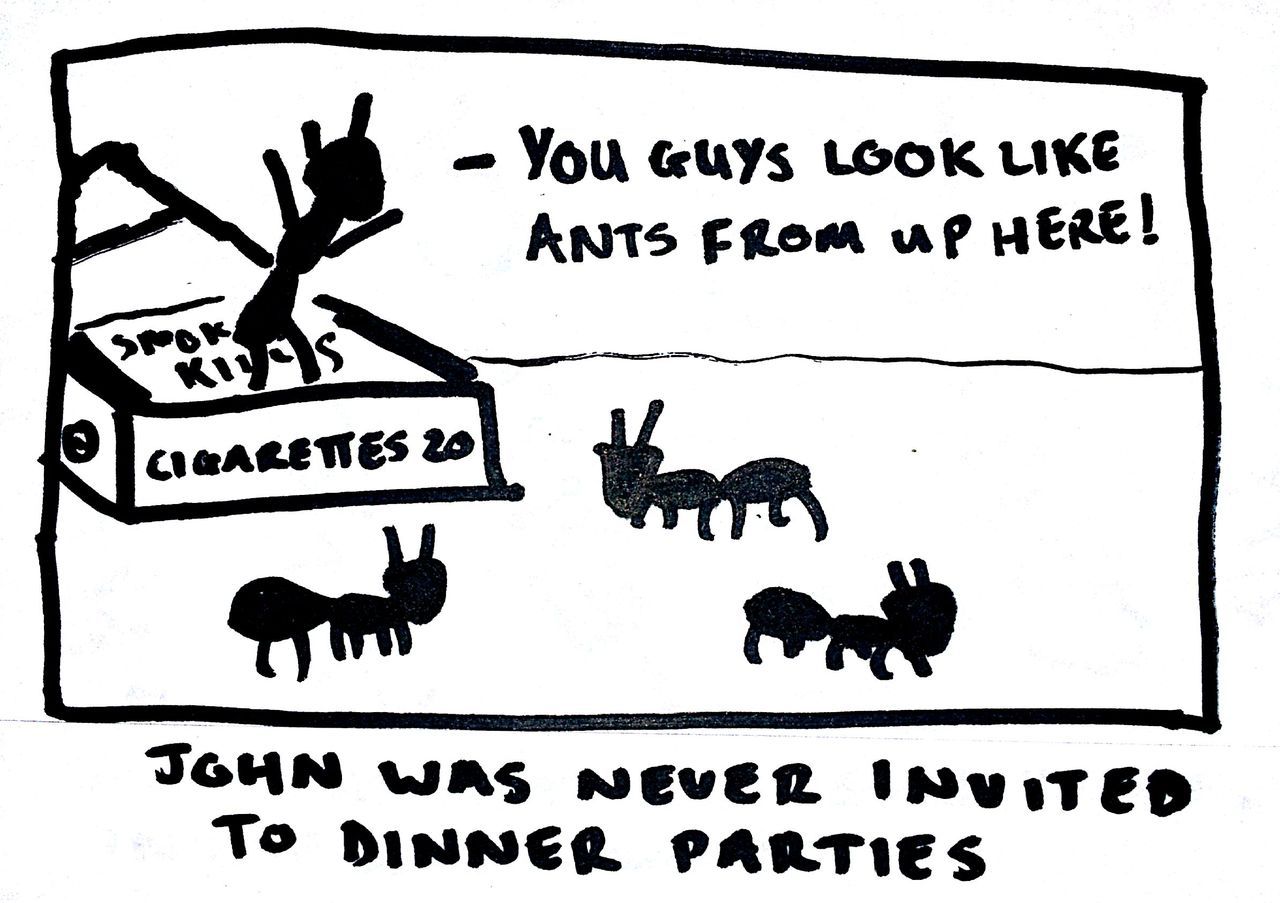 - YOU GUYS LOOK LIKE
ANTS FROM UP HERE!
SMOK
KILLS
CIGARETTES 20
JOHN WAS NEVER INVITED
TO DINNER PARTIES